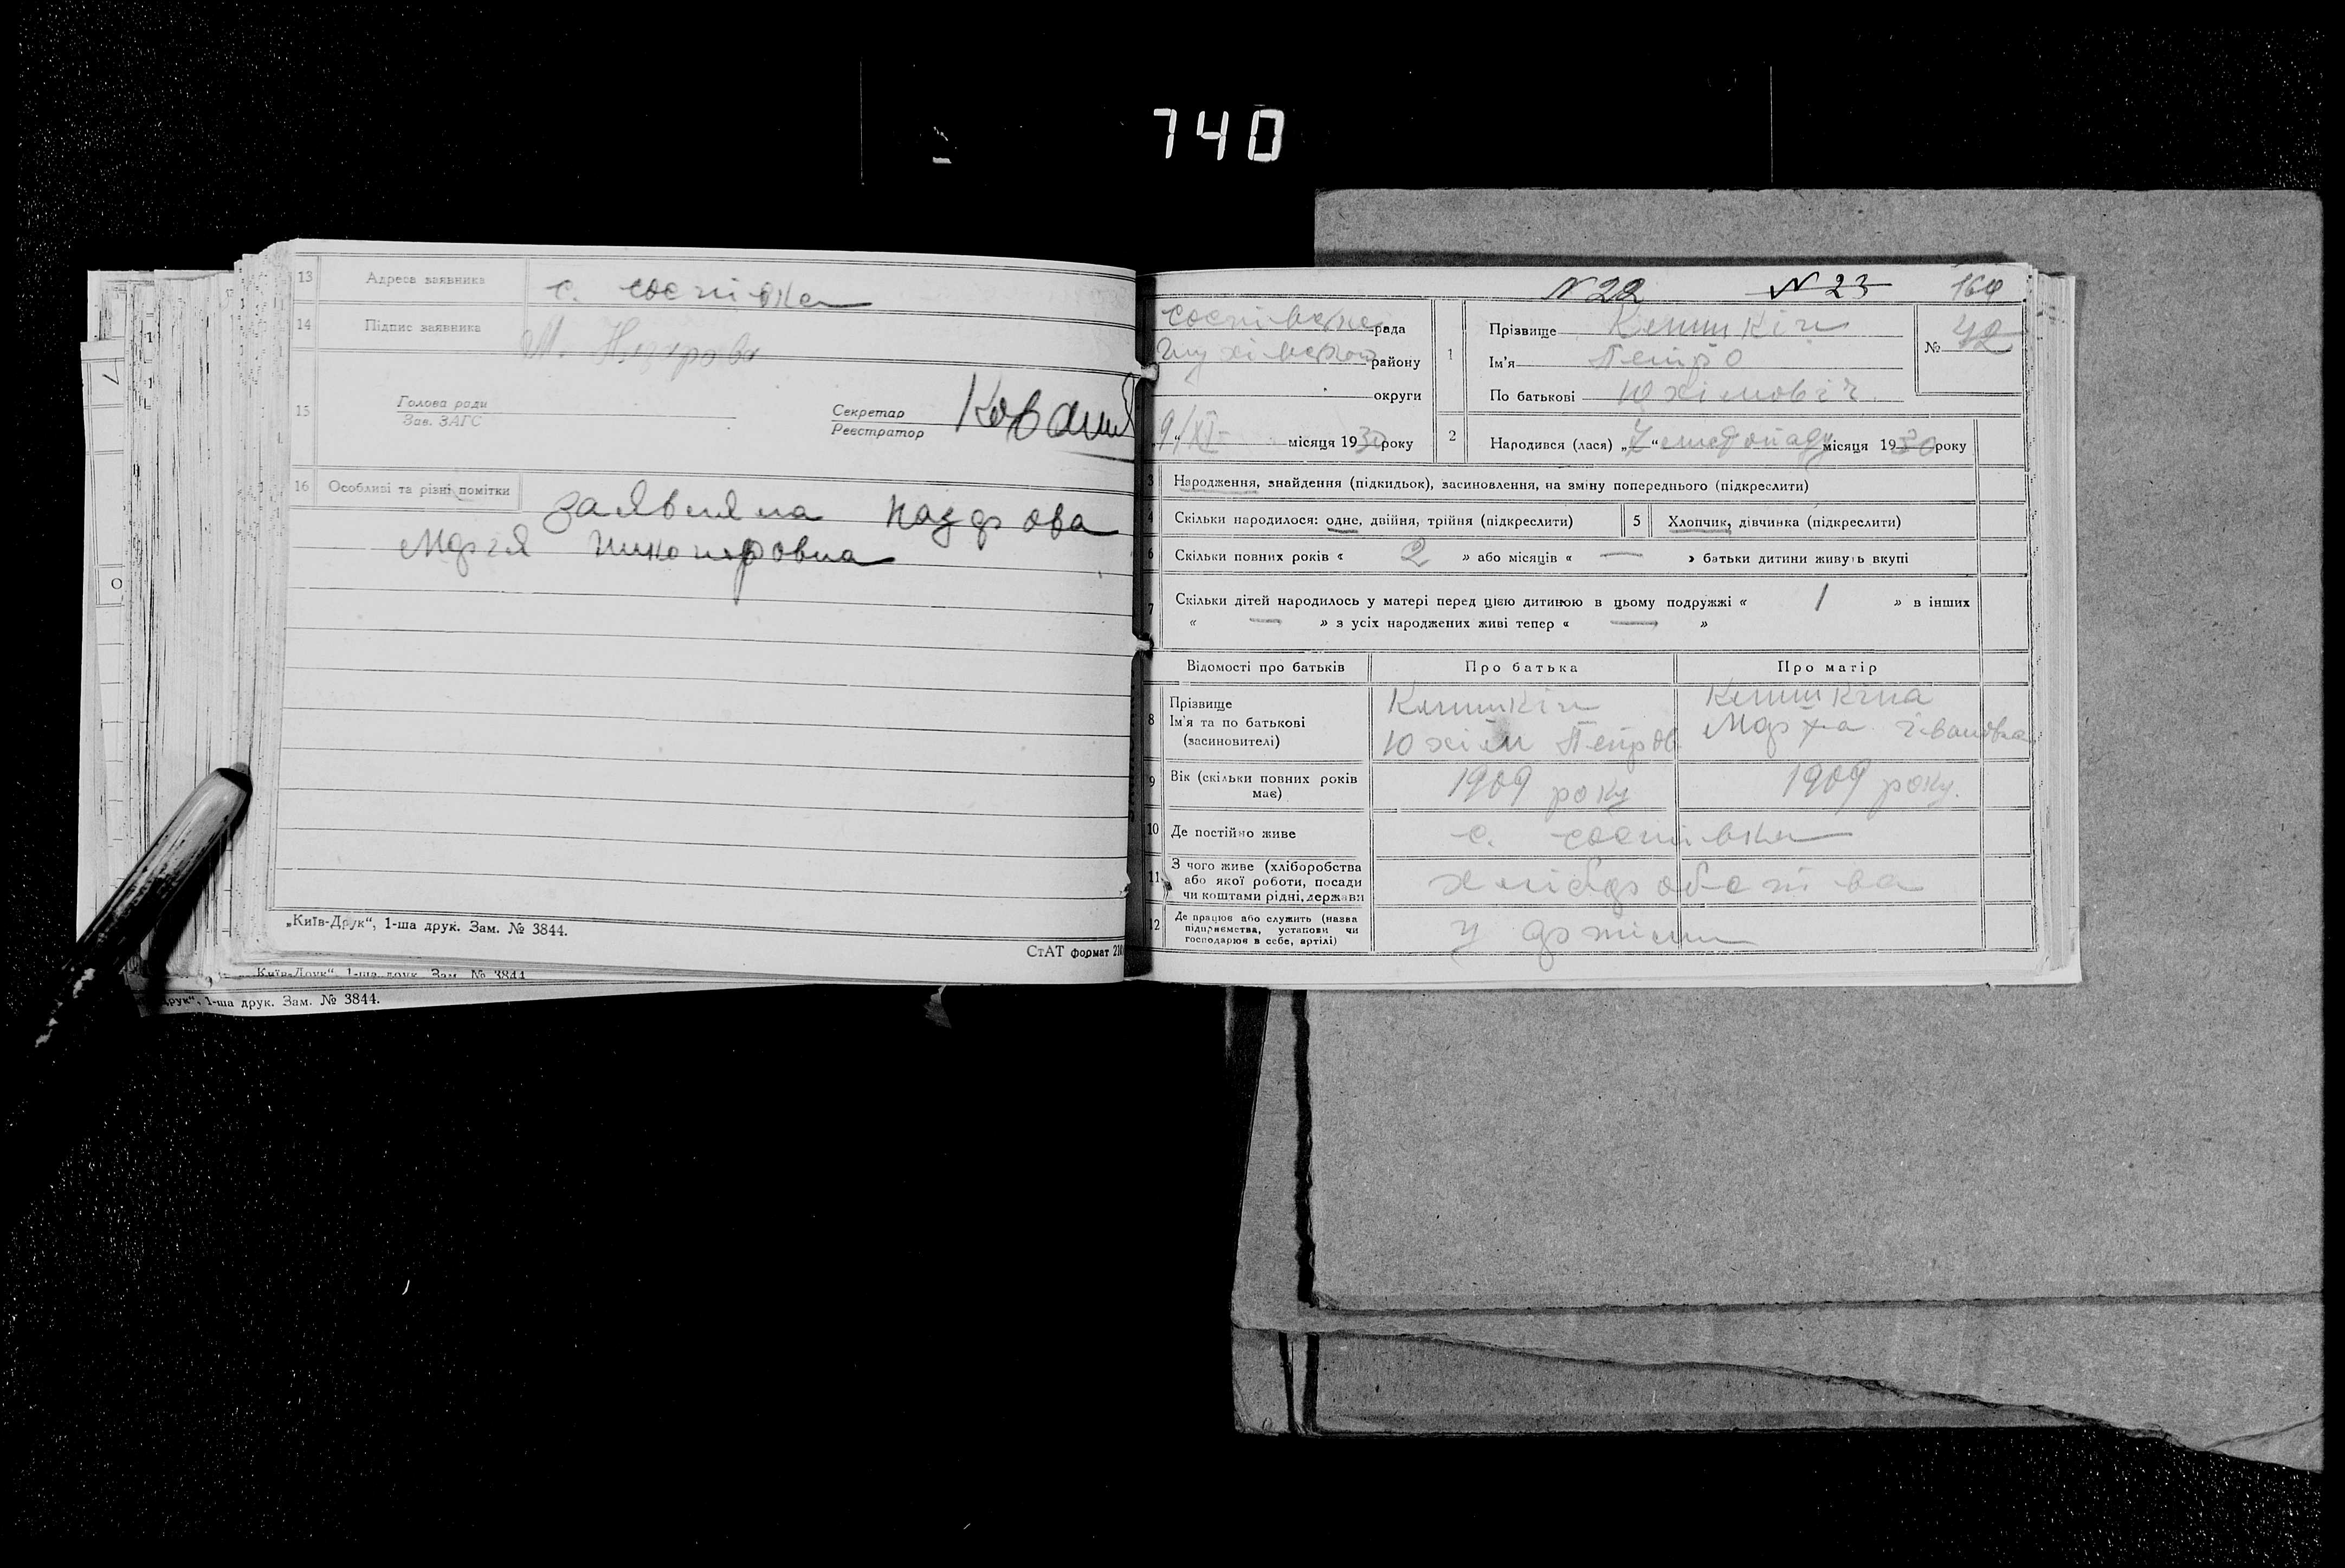 740
13 Адреса заявника
14 Підпис заявника М.
15 Голова ради
Зав. ЗАГС
Секретар
Реєстратор
16 Особливі та різні помітки заявляла Назарова
Марія
„Київ-Друк“, 1-ша друк. Зам. № 3844.
СтАТ формат
Київ-Друк“, 1-ша друк. Зам. № 3844
друк“, 1-ша друк. Зам. № 3844.
N 22 N 23
рада
району
округи
9/XI місяця 1930 року
1 Прізвище
Ім'я Петро
По батькові Юхімовіч
№ 42
2 Народився (лася) „7“ листопаду місяця 1930 року
3 Народження, знайдення (підкидьок), засиновлення, на зміну попереднього (підкреслити)
4 Скільки народилося: одне, двійня, трійня (підкреслити) 5 Хлопчик, дівчинка (підкреслити)
6 Скільки повних років « 2 » або місяців « — » батьки дитини живуть вкупі
7 Скільки дітей народилось у матері перед цією дитиною в цьому подружжі « 1 » в інших
« — » з усіх народжених живі тепер « — »
Відомості про батьків Про батька Про матір
8 Прізвище
Ім'я та по батькові
(засиновителі)
Юхім Петров.
Марфа Івановна
9 Вік (скільки повних років має) 1909 року 1909 року.
10 Де постійно живе с.
11 З чого живе (хліборобства
або якої роботи, посади
чи коштами рідні, держави
хліборобства
12 Де працює або служить (назва
підприємства, установи чи
господарює в себе, артілі)
у артіли